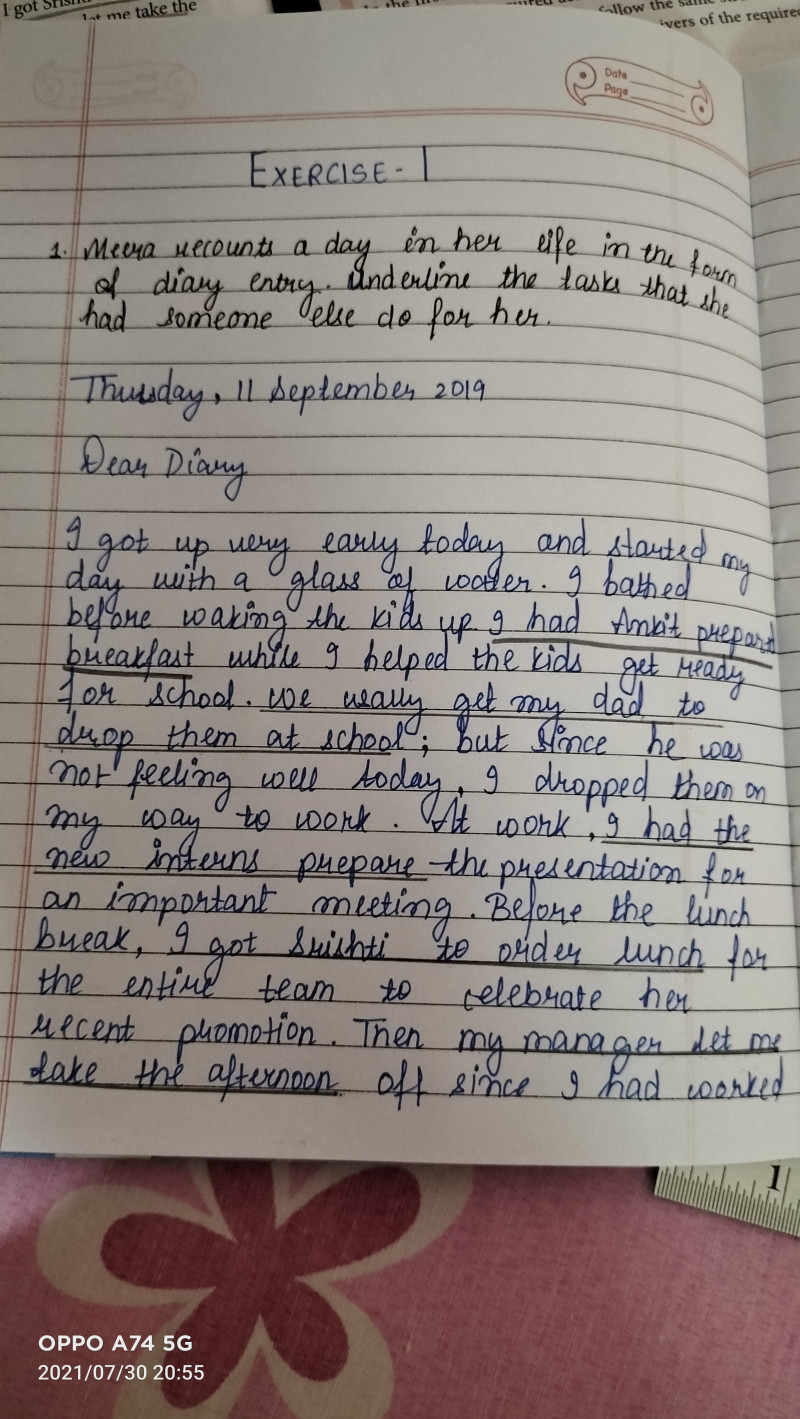 I got Srishti
let me take the
follow the same
ivers of the required
Date
Page
EXERCISE - 1
1. Meera recounts a day in her life in the form
of diary entry. Underline the tasks that she
had someone else do for her.
Thursday, 11 September 2019
Dear Diary
I got up very early today and started my
day with a glass of water. I bathed
before waking the kids up I had Ankit prepard
breakfast while I helped the kids get ready
for school. We usally get my dad to
drop them at school; but since he was
not feeling well today, I dropped them on
my way to work. At work, I had the
new interns prepare the presentation for
an important meeting. Before the lunch
break, I got Srishti to order lunch for
the entire team to celebrate her
recent promotion. Then my manager let me
take the afternoon off since I had worked
1
OPPO A74 5G
2021/07/30 20:55